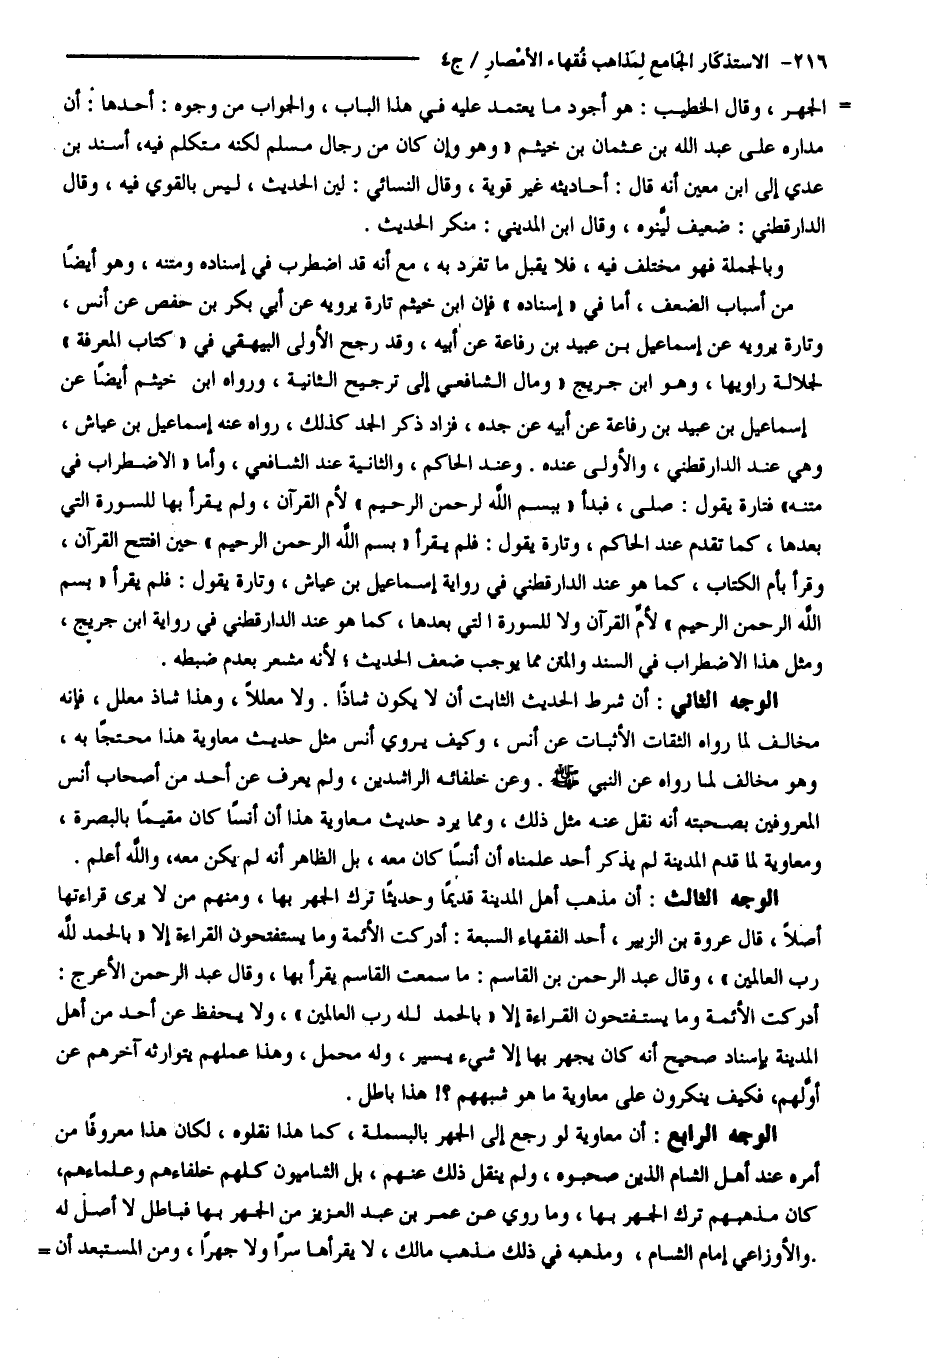 ٢١٦- الاستذكار الجامع لمذاهب فقهاء الأمصار / ج٤
= الجهر ، وقال الخطيب : هو أجود ما يعتمد عليه في هذا الباب ، والجواب من وجوه : أحدها : أن
مداره على عبد الله بن عثمان بن خيثم « وهو وإن كان من رجال مسلم لكنه متكلم فيه، أسند بن
عدي إلى ابن معين أنه قال : أحاديثه غير قوية ، وقال النسائي : لين الحديث ، ليس بالقوي فيه ، وقال
الدارقطني : ضعيف ليَّنوه ، وقال ابن المديني : منكر الحديث .
وبالجملة فهو مختلف فيه ، فلا يقبل ما تفرد به ، مع أنه قد اضطرب في إسناده ومتنه ، وهو أيضًا
من أسباب الضعف ، أما في « إسناده » فإن ابن خيثم تارة يرويه عن أبي بكر بن حفص عن أنس ،
وتارة يرويه عن إسماعيل بن عبيد بن رفاعة عن أبيه ، وقد رجح الأولى البيهقي في « كتاب المعرفة »
لجلالة راويها ، وهو ابن جريج « ومال الشافعي إلى ترجيح الثانية ، ورواه ابن خيثم أيضًا عن
إسماعيل بن عبيد بن رفاعة عن أبيه عن جده ، فزاد ذكر الجد كذلك ، رواه عنه إسماعيل بن عياش ،
وهي عند الدارقطني ، والأولى عنده . وعند الحاكم ، والثانية عند الشافعي ، وأما « الاضطراب في
متنه» فتارة يقول : صلى ، فبدأ « ببسم اللَّه لرحمن الرحيم » لأم القرآن ، ولم يقرأ بها للسورة التي
بعدها ، كما تقدم عند الحاكم ، وتارة يقول : فلم يقرأ « بسم اللَّه الرحمن الرحيم » حين افتتح القرآن ،
وقرأ بأم الكتاب ، كما هو عند الدارقطني في رواية إسماعيل بن عياش ، وتارة يقول : فلم يقرأ « بسم
اللَّه الرحمن الرحيم » لأمِّ القرآن ولا للسورة ا لتي بعدها ، كما هو عند الدارقطني في رواية ابن جريج ،
ومثل هذا الاضطراب في السند والمتن مما يوجب ضعف الحديث ؛ لأنه مشعر بعدم ضبطه .
الوجه الثاني : أن شرط الحديث الثابت أن لا يكون شاذًا . ولا معللاً ، وهذا شاذ معلل ، فإنه
مخالف لما رواه الثقات الأثبات عن أنس ، وكيف يروي أنس مثل حديث معاوية هذا محتجًا به ،
وهو مخالف لما رواه عن النبي ﷺ . وعن خلفائه الراشدين ، ولم يعرف عن أحد من أصحاب أنس
المعروفين بصحبته أنه نقل عنه مثل ذلك ، ومما يرد حديث معاوية هذا أن أنسًا كان مقيمًا بالبصرة ،
ومعاوية لما قدم المدينة لم يذكر أحد علمناه أن أنسًا كان معه ، بل الظاهر أنه لم يكن معه، واللَّه أعلم .
الوجه الثالث : أن مذهب أهل المدينة قديمًا وحديثًا ترك الجهر بها ، ومنهم من لا يرى قراءتها
أصلاً ، قال عروة بن الزبير ، أحد الفقهاء السبعة : أدركت الأئمة وما يستفتحون القراءة إلا « بالحمد للَّه
رب العالمين » ، وقال عبد الرحمن بن القاسم : ما سمعت القاسم يقرأ بها ، وقال عبد الرحمن الأعرج :
أدركت الأئمة وما يستفتحون القراءة إلا « بالحمد لله رب العالمين » ، ولا يحفظ عن أحد من أهل
المدينة بإسناد صحيح أنه كان يجهر بها إلا شيء يسير ، وله محمل ، وهذا عملهم يتوارثه آخرهم عن
أوَّلهم، فكيف ينكرون على معاوية ما هو شبههم ؟! هذا باطل .
الوجه الرابع : أن معاوية لو رجع إلى الجهر بالبسملة ، كما هذا نقلوه ، لكان هذا معروفًا من
أمره عند أهل الشام الذين صحبوه ، ولم ينقل ذلك عنهم ، بل الشاميون كلهم خلفاءهم وعلماءهم،
كان مذهبهم ترك الجهر بها ، وما روي عن عمر بن عبد العزيز من الجهر بها فباطل لا أصل له
.والأوزاعي إمام الشام ، ومذهبه في ذلك مذهب مالك ، لا يقرأها سرًا ولا جهرًا ، ومن المستبعد أن =